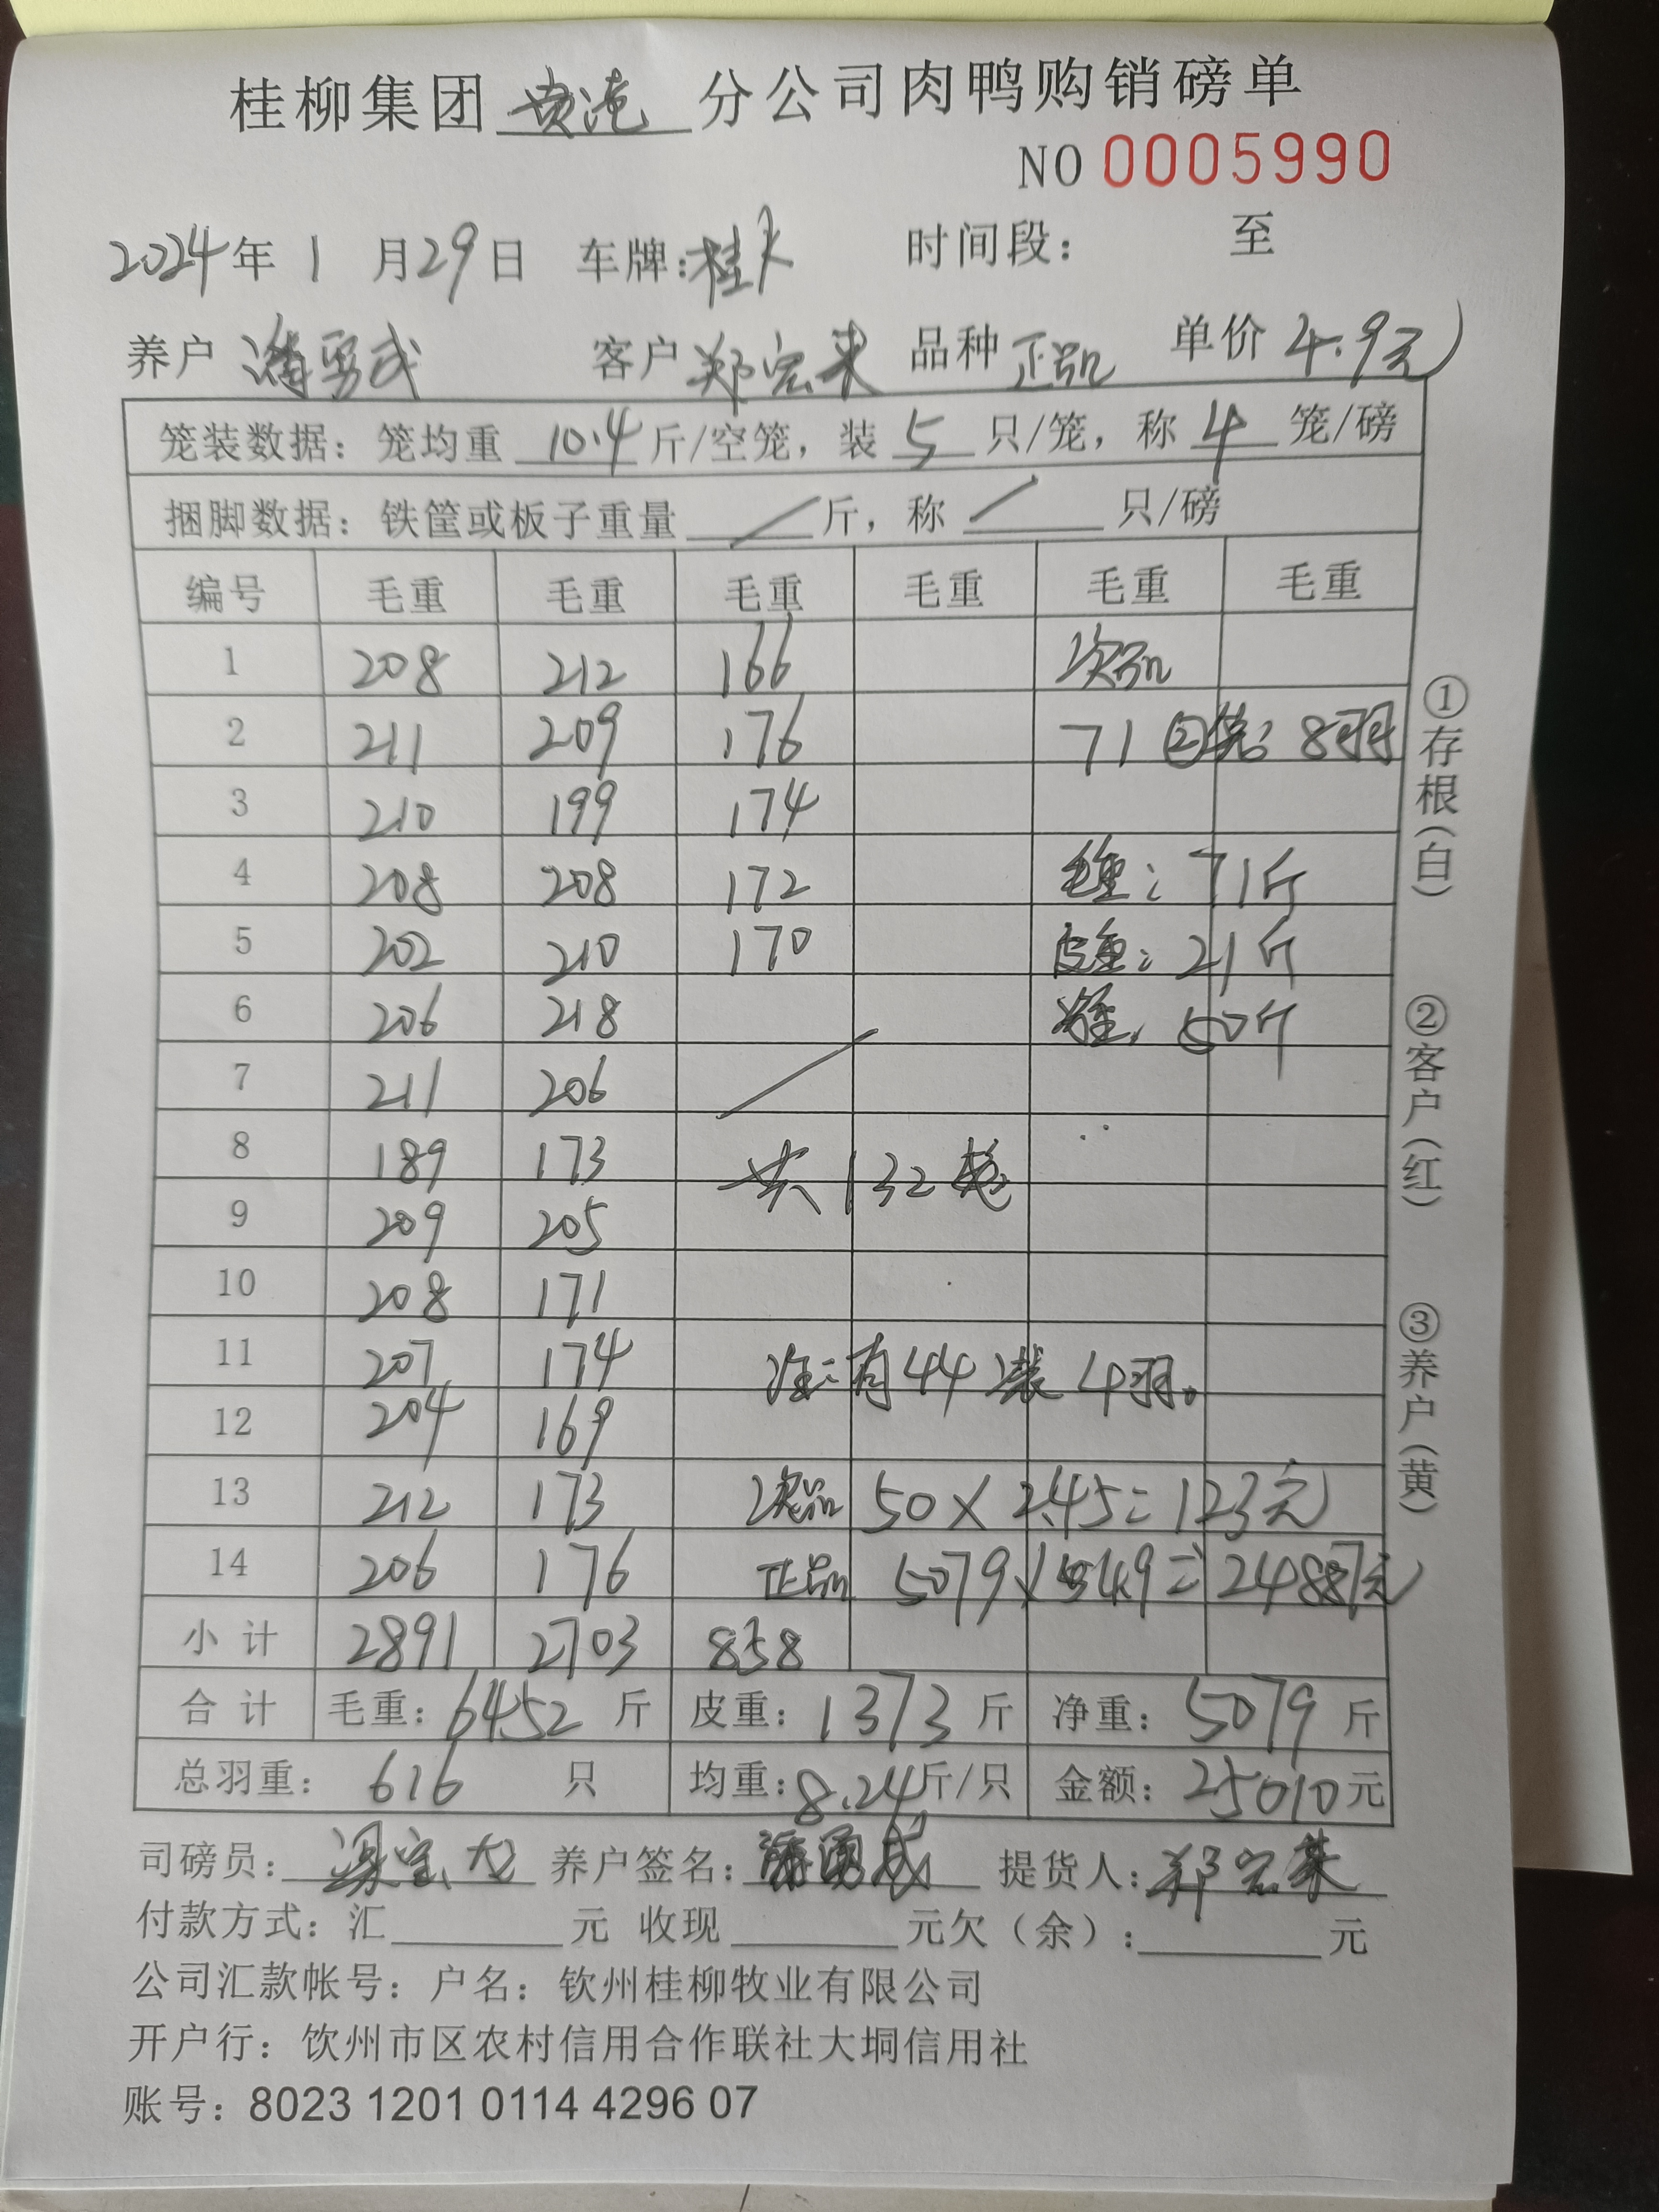 桂柳集团 黄淹 分公司肉鸭购销磅单
NO 0005990
2024年 1 月29日 车牌:桂 时间段: 至
养户 潘勇成 客户 郑宏来 品种 正品 单价 4.9元
笼装数据: 笼均重 10.4 斤/空笼, 装 5 只/笼, 称 4 笼/磅
捆脚数据: 铁筐或板子重量 / 斤, 称 / 只/磅
编号 毛重 毛重 毛重 毛重 毛重 毛重
1 208 212 166 次品
2 211 209 176 71 ②笼: 8羽
3 210 199 174
4 208 208 172 毛重: 71斤
5 202 210 170 皮重: 21斤
6 206 218 净重: 50斤
7 211 206 /
8 189 173 共132笼
9 209 205
10 208 171
11 207 174 注:有44装4羽。
12 204 169
13 212 173 次品 50×2.45=123元
14 206 176 正品 5079×4.9=24887元
小计 2891 2703 858
合计 毛重: 6452 斤 皮重: 1373 斤 净重: 5079 斤
总羽重: 616 只 均重: 8.24斤/只 金额: 25010元
司磅员: 养户签名: 潘勇成 提货人: 郑宏来
付款方式: 汇 元 收现 元欠(余): 元
公司汇款帐号: 户名: 钦州桂柳牧业有限公司
开户行: 饮州市区农村信用合作联社大垌信用社
账号: 8023 1201 0114 4296 07
①存根(白) ②客户(红) ③养户(黄)